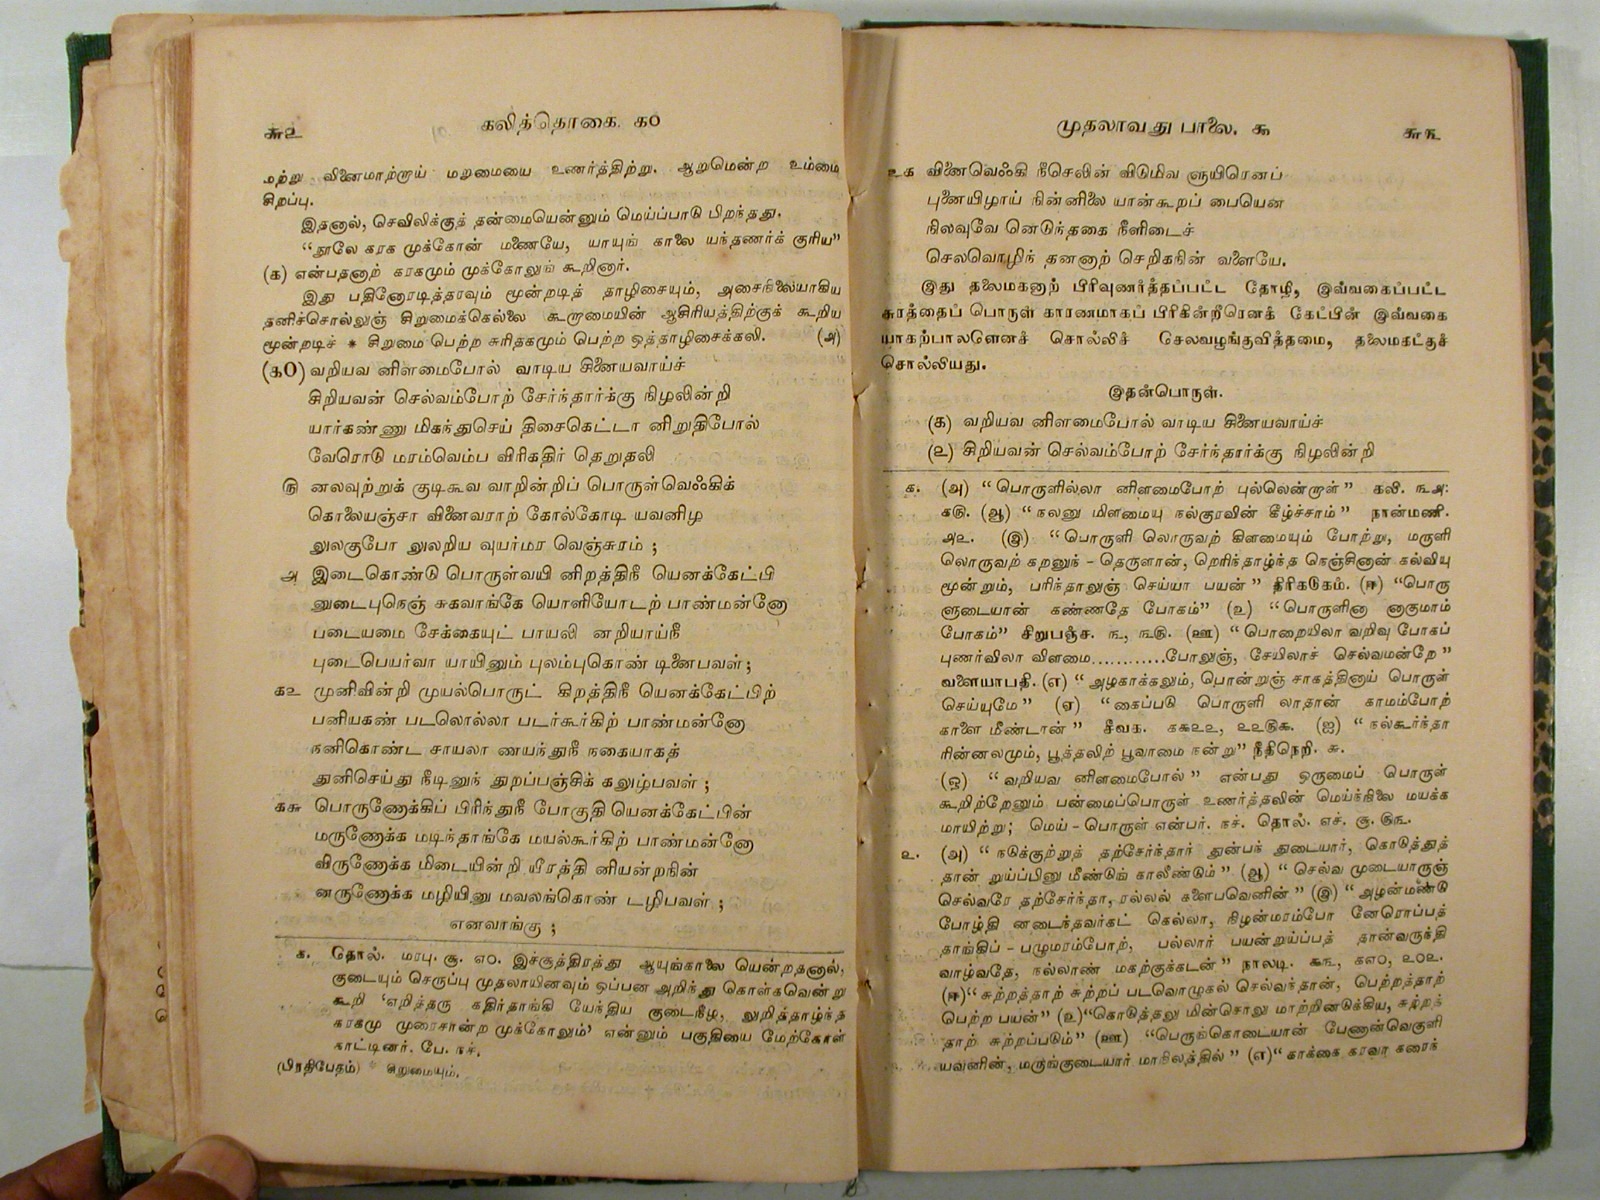 ௬௨ கலித்தொகை. ௧0
மற்று வினைமாற்றாய் மறுமையை உணர்த்திற்று. ஆறுமென்ற உம்மை
சிறப்பு.
இதனால், செவிலிக்குத் தன்மையென்னும் மெய்ப்பாடு பிறந்தது.
“நூலே கரக முக்கோன் மணையே, யாயுங் காலை யந்தணர்க் குரிய”
(௧) என்பதனாற் கரகமும் முக்கோலுங் கூறினார்.
இது பதினோரடித்தரவும் மூன்றடித் தாழிசையும், அசைநிலையாகிய
தனிச்சொல்லுஞ் சிறுமைக்கெல்லை கூறாமையின் ஆசிரியத்திற்குக் கூறிய
மூன்றடிச் * சிறுமை பெற்ற சுரிதகமும் பெற்ற ஒத்தாழிசைக்கலி. (௮)
(௧0) வறியவ னிளமைபோல் வாடிய சினையவாய்ச்
சிறியவன் செல்வம்போற் சேர்ந்தார்க்கு நிழலின்றி
யார்கண்ணு மிகந்துசெய் திசைகெட்டா னிறுதிபோல்
வேரொடு மரம்வெம்ப விரிகதிர் தெறுதலி
௫ னலவுற்றுக் குடிகூவ வாறின்றிப் பொருள்வெஃகிக்
கொலையஞ்சா வினைவராற் கோல்கோடி யவனிழ
லுலகுபோ லுலறிய வுயர்மர வெஞ்சுரம் ;
௮ இடைகொண்டு பொருள்வயி னிறத்திநீ யெனக்கேட்பி
னுடைபுநெஞ் சுகவாங்கே யொளியோடற் பாண்மன்னோ
படையமை சேக்கையுட் பாயலி னறியாய்நீ
புடைபெயர்வா யாயினும் புலம்புகொண் டினைபவள்;
௧௨ முனிவின்றி முயல்பொருட் கிறத்திநீ யெனக்கேட்பிற்
பனியகண் படலொல்லா படர்கூர்கிற் பாண்மன்னோ
நனிகொண்ட சாயலா ணயந்துநீ நகையாகத்
துனிசெய்து நீடினுந் துறப்பஞ்சிக் கலுழ்பவள் ;
௧௬ பொருணோக்கிப் பிரிந்துநீ போகுதி யெனக்கேட்பின்
மருணோக்க மடிந்தாங்கே மயல்கூர்கிற் பாண்மன்னோ
விருணோக்க மிடையின்றி யீரத்தி னியன்றநின்
னருணோக்க மழியினு மவலங்கொண் டழிபவள் ;
எனவாங்கு ;
௧. தொல். மரபு. சூ. ௭0. இச்சூத்திரத்து ஆயுங்காலை யென்றதனால்,
குடையும் செருப்பு முதலாயினவும் ஒப்பன அறிந்து கொள்கவென்று
கூறி ‘எறித்தரு கதிர்தாங்கி யேந்திய குடைநீழ, லுறித்தாழ்ந்த
கரகமு முரைசான்ற முக்கோலும்’ என்னும் பகுதியை மேற்கோள்
காட்டினர். பே. நச்.
(பிரதிபேதம்) * சிறுமையும்.
முதலாவது பாலை. ௯ ௬௩
௨௧ வினைவெஃகி நீசெலின் விடுமிவ ளுயிரெனப்
புனையிழாய் நின்னிலை யான்கூறப் பையென
நிலவுவே னெடுந்தகை நீளிடைச்
செலவொழிந் தனனாற் செறிகநின் வளையே.
இது தலைமகனாற் பிரிவுணர்த்தப்பட்ட தோழி, இவ்வகைப்பட்ட
சுரத்தைப் பொருள் காரணமாகப் பிரிகின்றீரெனக் கேட்பின் இவ்வகை
யாகற்பாலளெனச் சொல்லிச் செலவழுங்குவித்தமை, தலைமகட்குச்
சொல்லியது.
இதன்பொருள்.
(௧) வறியவ னிளமைபோல் வாடிய சினையவாய்ச்
(௨) சிறியவன் செல்வம்போற் சேர்ந்தார்க்கு நிழலின்றி
௧. (அ) “பொருளில்லா னிளமைபோற் புல்லென்றாள்” கலி. ௩௮:
௧௫. (ஆ) “நலனு மிளமையு நல்குரவின் கீழ்ச்சாம்” நான்மணி.
௮௨. (இ) “பொருளி லொருவற் கிளமையும் போற்று, மருளி
லொருவற் கறனுந் - தெருளான், றெரிந்தாழ்ந்த நெஞ்சினான் கல்வியு
மூன்றும், பரிந்தாலுஞ் செய்யா பயன்” திரிகடுகம். (ஈ) “பொரு
ளுடையான் கண்ணதே போகம்” (உ) “பொருளினா னாகுமாம்
போகம்” சிறுபஞ்ச. ௩, ௩௫. (ஊ) “பொறையிலா வறிவு போகப்
புணர்விலா விளமை............போலுஞ், சேயிலாச் செல்வமன்றே”
வளையாபதி. (எ) “அழகாக்கலும், பொன்றுஞ் சாகத்தினாய் பொருள்
செய்யுமே” (ஏ) “கைப்படு பொருளி லாதான் காமம்போற்
காளை மீண்டான்” சீவக. ௧௯௨௨, ௨௨௫௯. (ஐ) “நல்கூர்ந்தா
ரின்னலமும், பூத்தலிற் பூவாமை நன்று” நீதிநெறி. ௬.
(ஒ) “வறியவ னிளமைபோல்” என்பது ஒருமைப் பொருள்
கூறிற்றேனும் பன்மைப்பொருள் உணர்த்தலின் மெய்ந்நிலை மயக்க
மாயிற்று; மெய் - பொருள் என்பர். நச். தொல். எச். சூ. ௫௩.
௨. (அ) “நடுக்குற்றுத் தற்சேர்ந்தார் துன்பந் துடையார், கொடுத்துத்
தான் றுய்ப்பினு மீண்டுங் காலீண்டும்” (ஆ) “செல்வ முடையாருஞ்
செல்வரே தற்சேர்ந்தா, ரல்லல் களைபவெனின்” (இ) “அழன்மண்டு
போழ்தி னடைந்தவர்கட் கெல்லா, நிழன்மரம்போ னேரொப்பத்
தாங்கிப் - பழுமரம்போற், பல்லார் பயன்றுய்ப்பத் தான்வருந்தி
வாழ்வதே, நல்லாண் மகற்குக்கடன்” நாலடி. ௯௩, ௧௭0, ௨0௨.
(ஈ) “சுற்றத்தாற் சுற்றப் படவொழுகல் செல்வந்தான், பெற்றத்தாற்
பெற்ற பயன்” (உ) “கொடுத்தலு மின்சொலு மாற்றினடுக்கிய, சுற்றத்
தாற் சுற்றப்படும்” (ஊ) “பெருங்கொடையான் பேணான்வெகுளி
யவனின், மருங்குடையார் மாநிலத்தில்” (எ) “காக்கை கரவா கரைந்